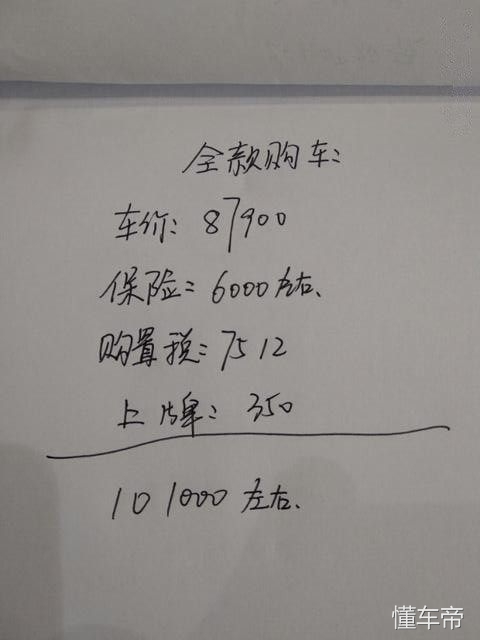 全款购车:
车价: 87900
保险: 6000左右.
购置税: 7512
上牌: 350
101000左右.
懂车帝